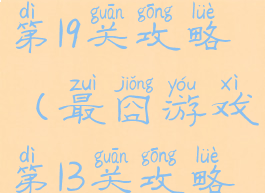 dì guān gōng lüè
第19关攻略
zuì jiǒng yóu xì
(最囧游戏
dì guān gōng lüè
第13关攻略